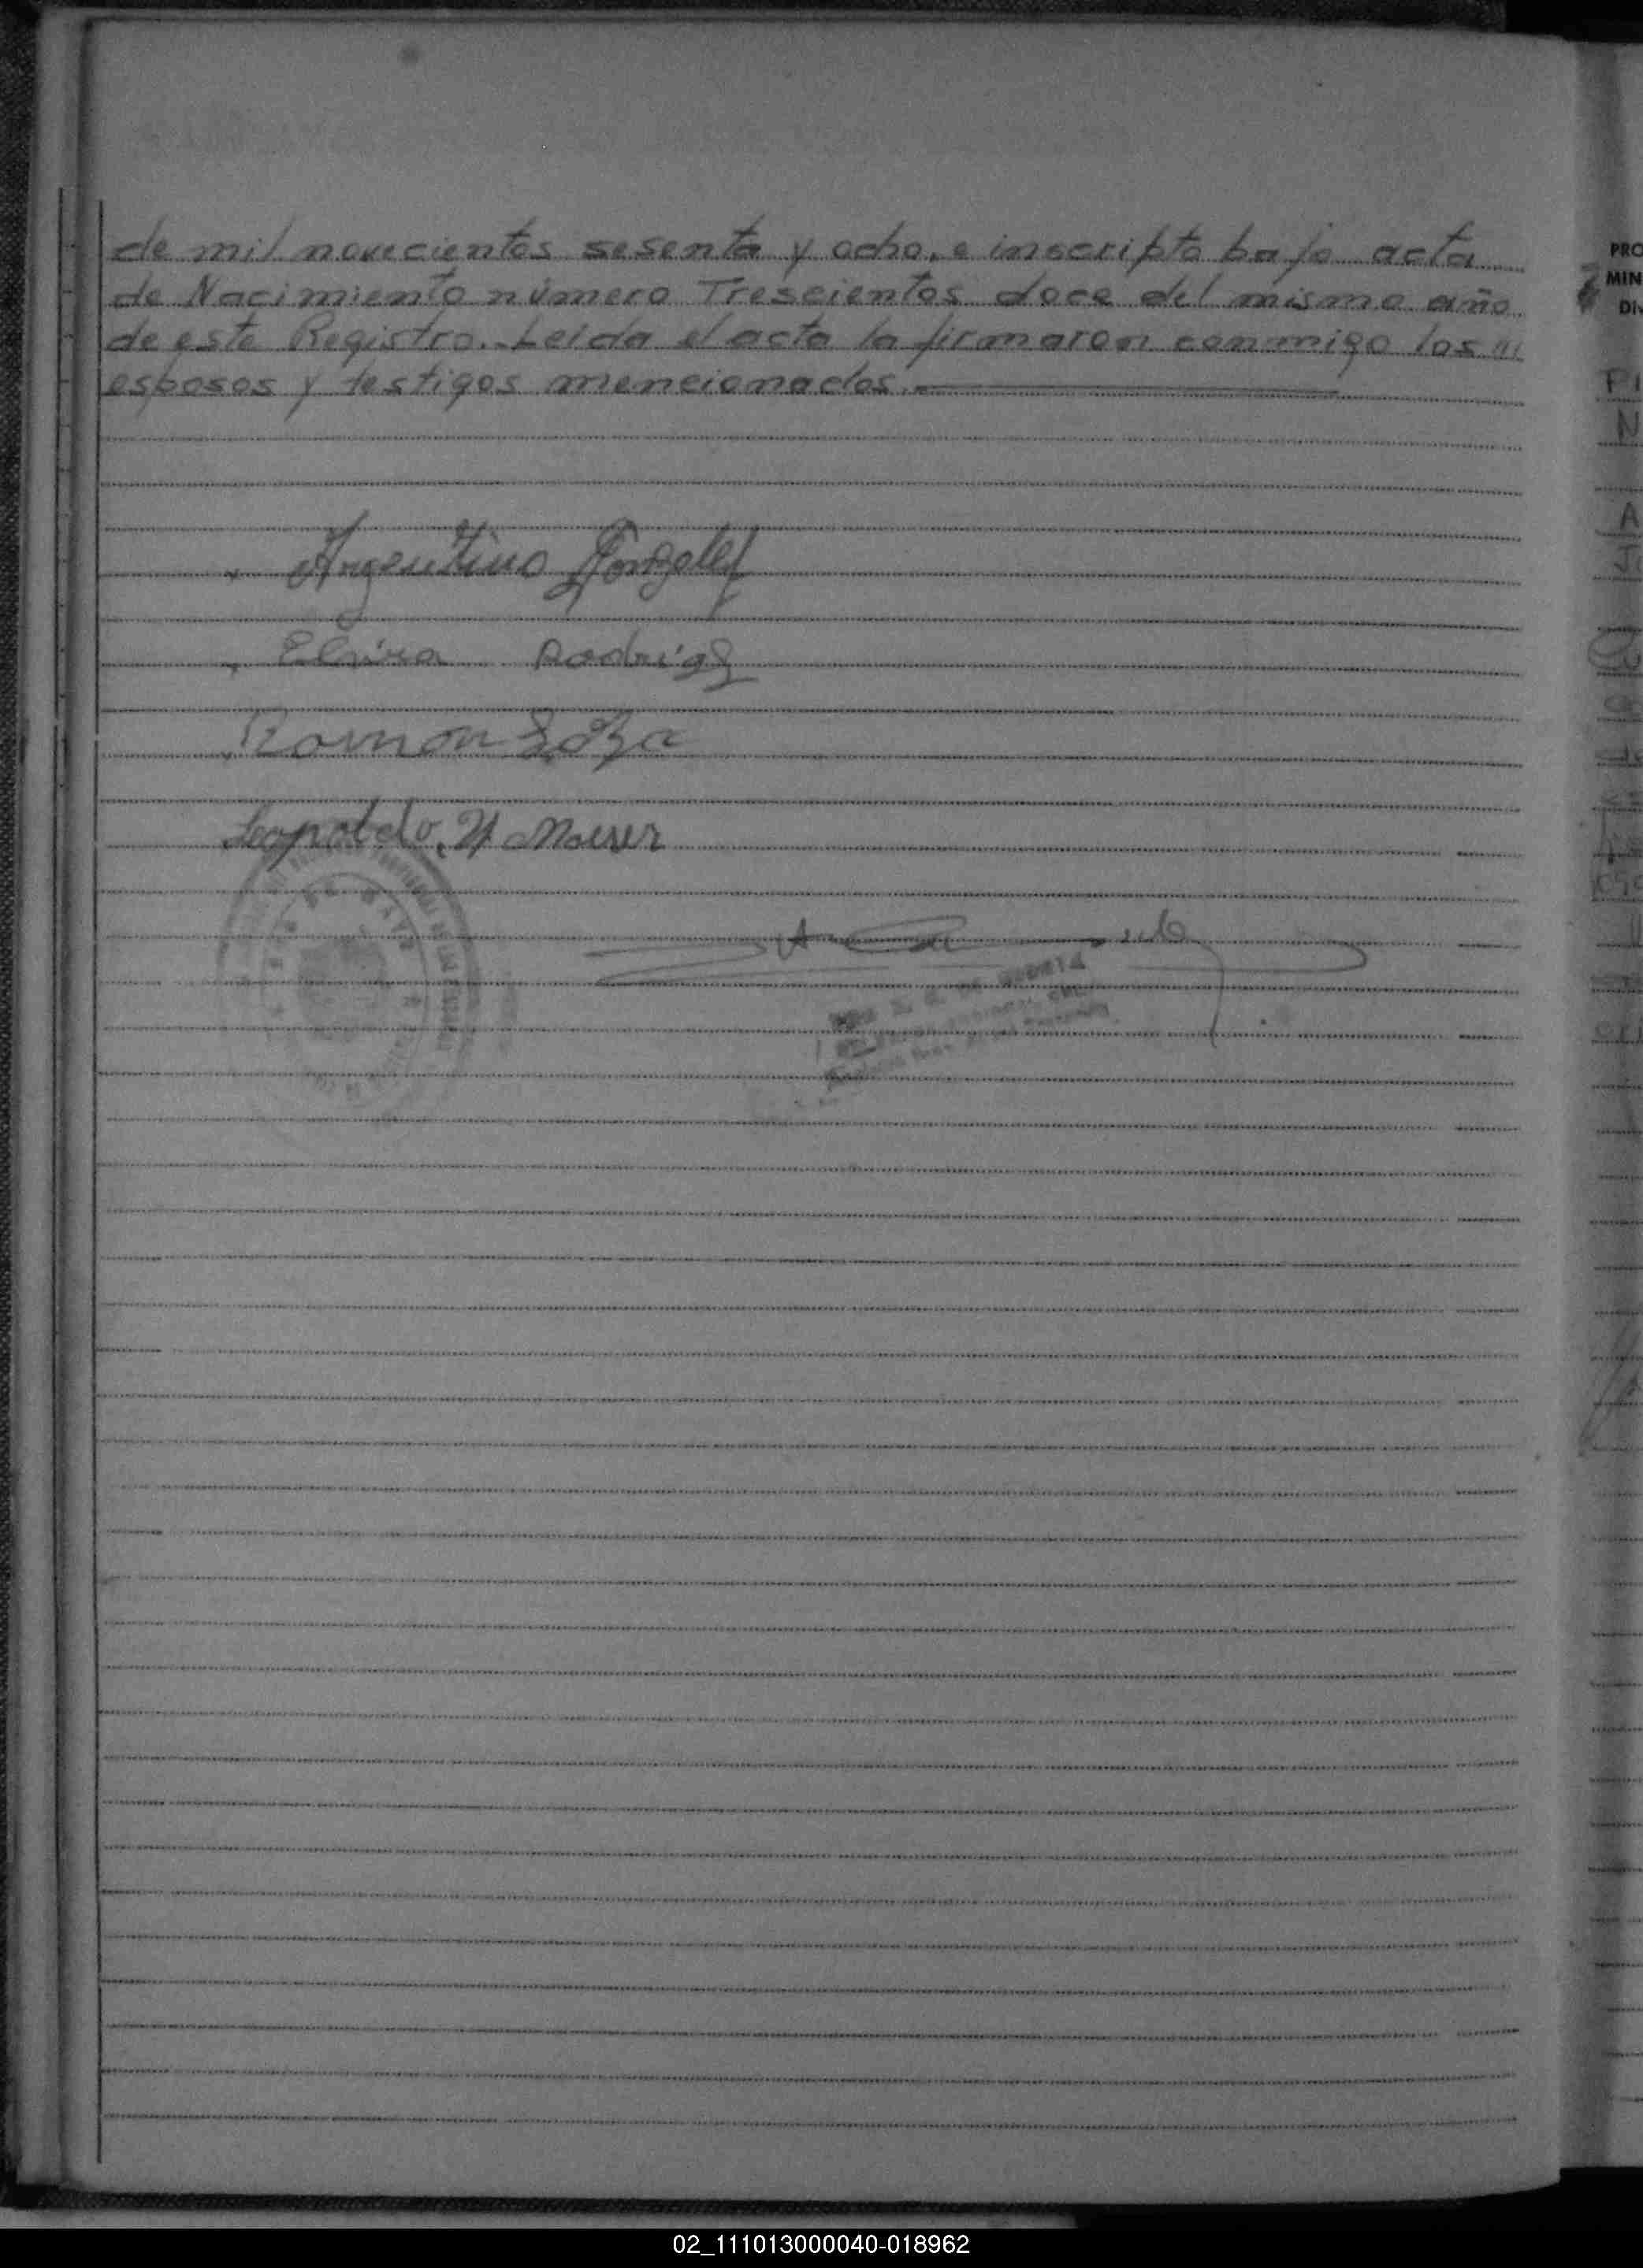 de mil novecientos sesenta y ocho, e inscripto bajo acta
de Nacimiento número Trescientos doce del mismo año
de este Registro. Leida el acta la firmaron conmigo los
esposos y testigos mencionados.
Argentino Gonzalez
Elvira Rodrigz
Ramon Soza
Leopoldo. H
PRO
MIN
DIV
02_111013000040-018962